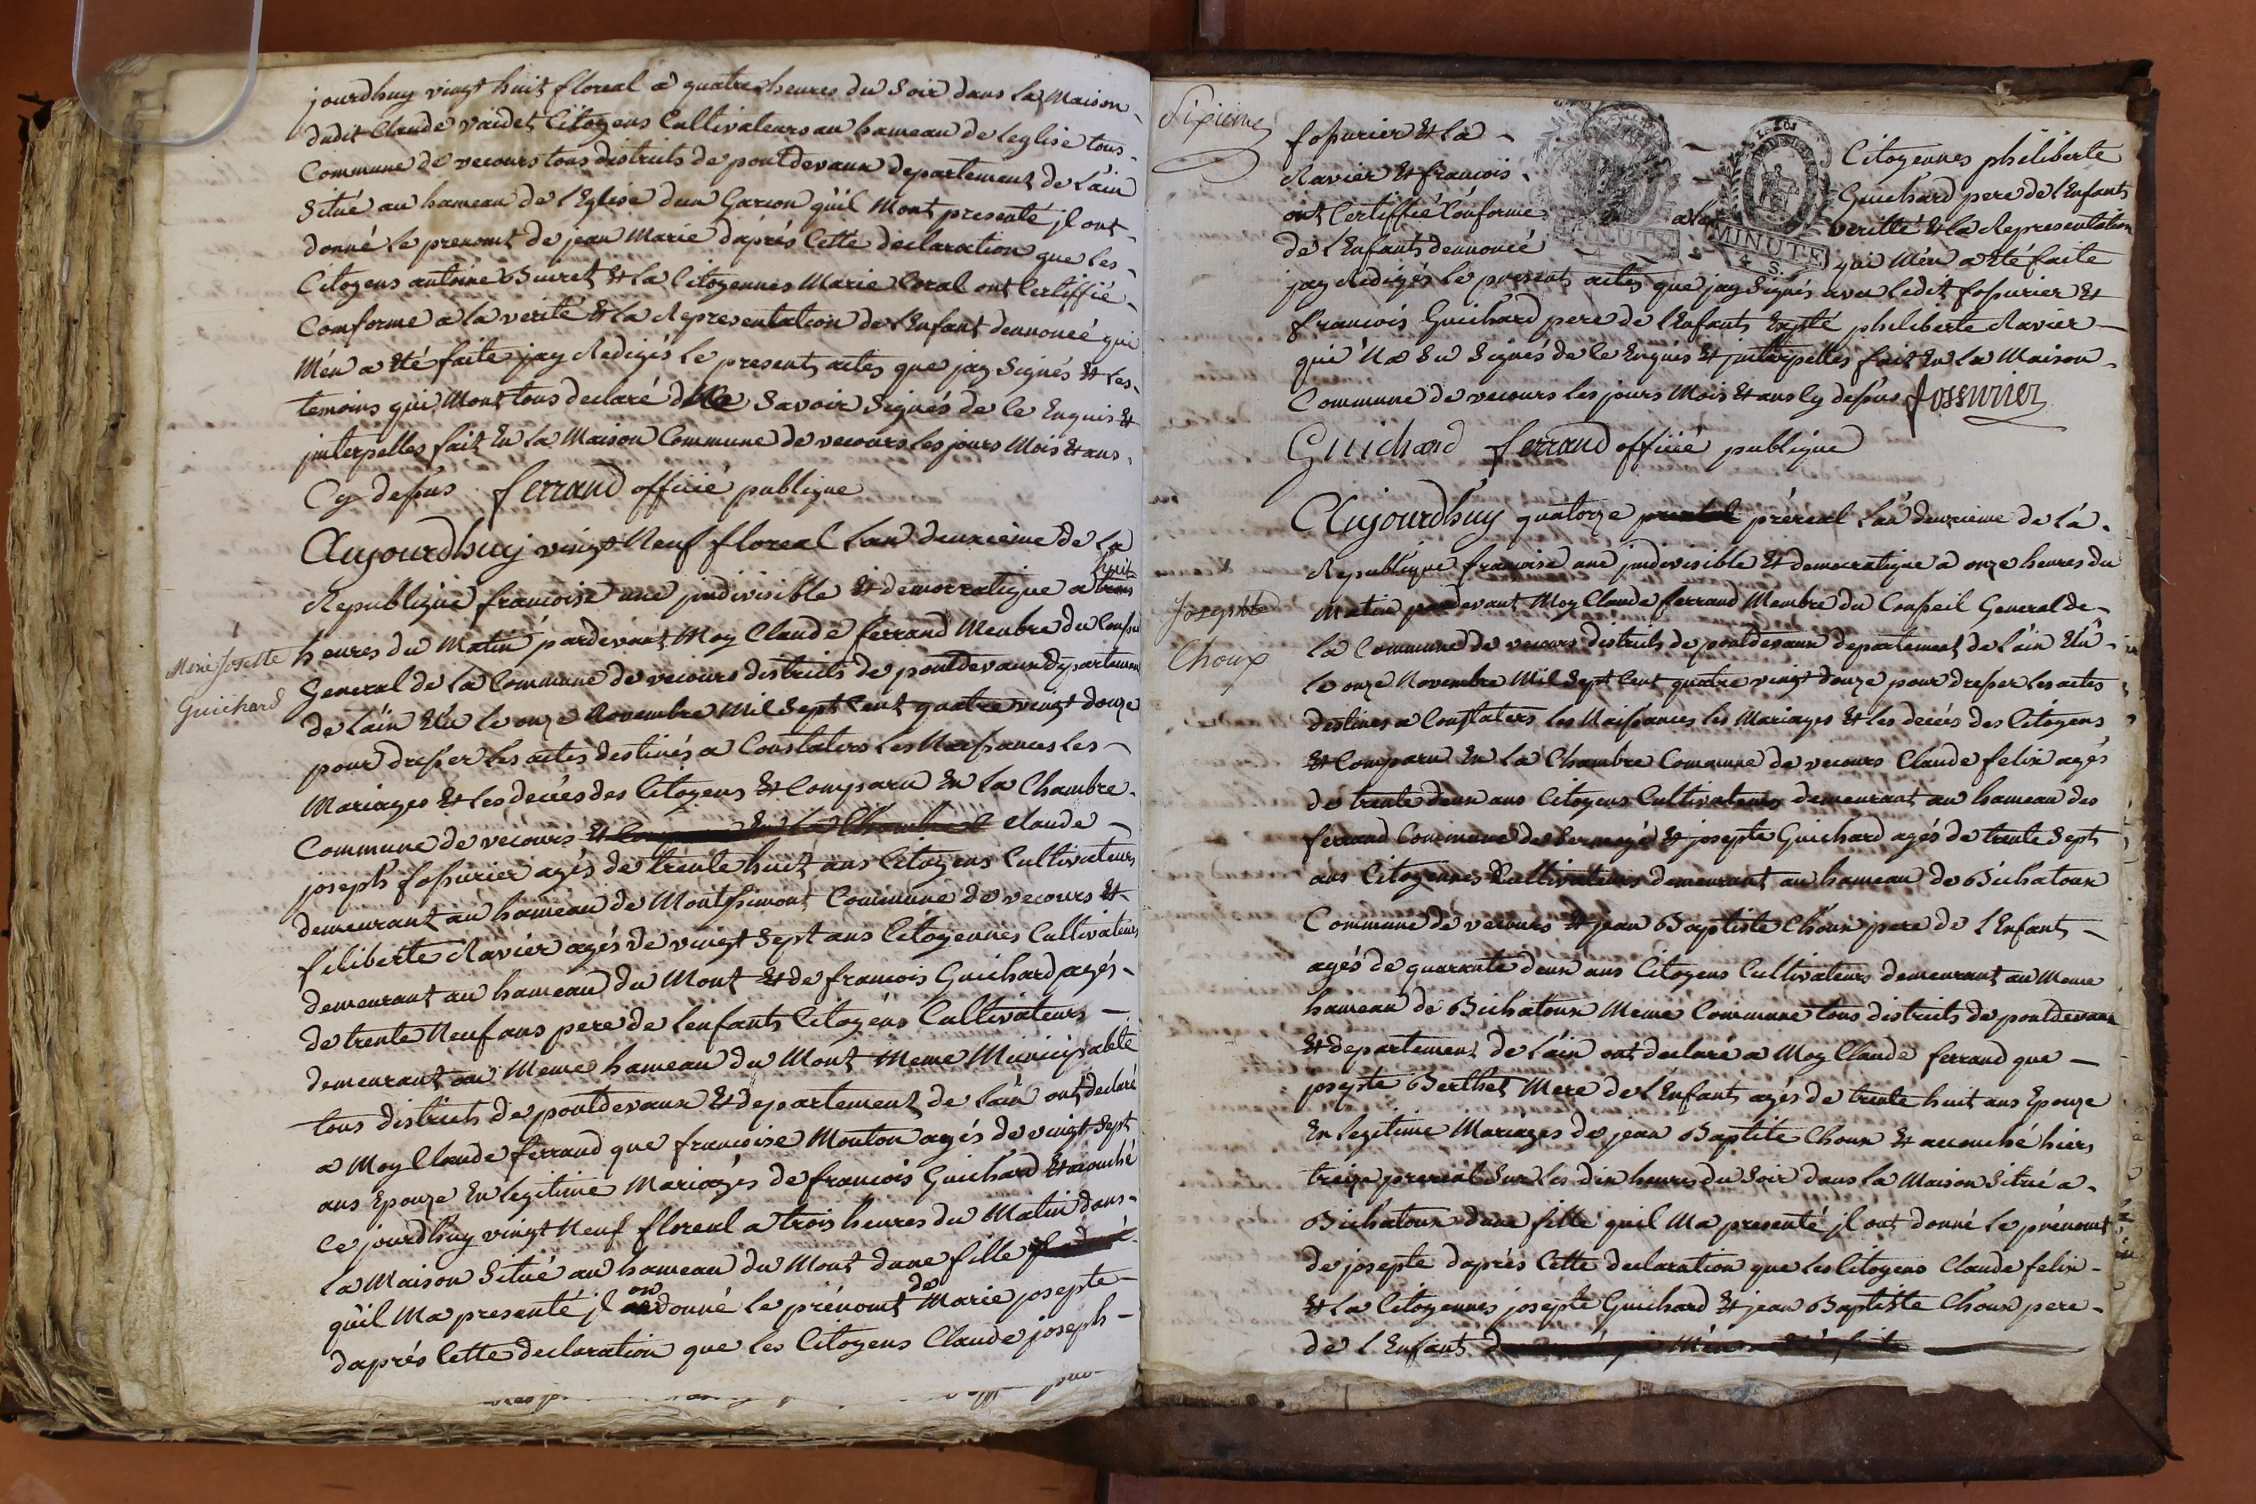 jourdhuy vingt huit floreal a quatre heures du Soir dans la Maison
dudit Claude vaidet Citoyens Cultivateurs au hameau de leglise tous
Commune de vecours tous districts de pontdevaux departement de l'ain
Situé au hameau de l'Eglise dun Garcon quil Mont presenté jl ont
donné le prenomt de jean Marie dàprés Cette declaration que les
Citoyens antoine Buiret & la Citoyennes Marie Coral ont Certiffié
Comforme a la verité & la Representation de l'Enfant dennoncé qui
Mén a Eté faite jay Redigés le present actes que jay Signés & les
temoins qui Mont tous declaré de Ne Savoir Signés de le Enquis &
jnterpelles fait En la Maison Commune de vecours les jours Mois & ans
Cy dessus ferrand officié publique
Marie Josette
Guichard
Aujourdhuy vingt Neuf floreal Lan deuxieme de La
Republique francoise une jndivisible & democratique a trois huit
heures du Matin pardevant Moy Claude ferrand Menbre du Conseil
General de La Commune de vecours districts de pontdevaux departement
de lain Elu le onze Novembre Mil Sept Cent quatre vingt douze
pour dresser les actes destinés a Constaters les Naissances les
Mariages & les decées des Citoyens & Comparu En la Chambre
Commune de vecours & Comparu En La Chambre Claude
joseph fossurier agés de trente huit ans Citoyens Cultivateurs
demeurant au hameau de Montsimont Commune de vecours &
filiberte Ravier agés de vingt Sept ans Citoyennes Cultivateurs
demeurant au hameau du Mont & de francois Guichard agés
de trente Neuf ans pere de lenfants Citoyéns Cultivateurs
demeurant au Meme hameau du Mont Meme Municipalité
tous districts de pontdevaux & departement de l'ain ont declaré
a Moy Claude ferrand que francoise Monton agés de vingt Sept
ans Epouze En legitime Mariages de francois Guichard & acouché
Ce jourdhuy vingt Neuf floreal a trois heures du Matin dans
la Maison Situé au hameau du Mont dune fille
quil Ma presenté jl on donné le prénomt de Marie josepte
daprés Cette declaration que les Citoyens Claude joseph
Sixieme
fossurier & la Citoyennes philiberte
Ravier & francois Guichard pere de l'Enfants
ont Certiffié Conforme a la veritté & la Representation
de l'Enfants dennoncé qui Mén a Eté faite
MINUTE
MINUTE
4 S.
jay Redigés le present actes que jay Signés avec ledit fossurier &
francois Guichard pere de l'Enfants Exsté philiberte Ravier
qui Na Su Signés de le Enquis & jnterpelles fait En la Maison
Commune de vecours les jours Mois & ans Cy dessus fossurier
Guichard ferrand officié publique
Josephte
Choux
Aujourdhuy quatorze préreal Lan deuxieme de la
Republique francoise une jndivisible & democratique a onze heures du
Matin pardevant Moy Claude ferrand Membre du Conseil General de
la Commune de vecours districts de pontdevaux departement de lain Elû
le onze Novembre Mil Sept Cent quatre vingt douze pour dresser les actes
destinés a Constaters les Naissances les Mariages & les decées des Citoyens
& Comparu En la Chambre Commune de vecours Claude felix agés
de trente deux ans Citoyens Cultivateurs demeurant au hameau des
ferrand Commune de & josepte Guichard agés de trente Sept
ans Citoyennes Cultivateurs demeurant au hameau de Bichatoux
Commune de vecours & jean Baptiste Choux pere de l'Enfants
agés de quarante deux ans Citoyens Cultivateurs demeurant au Meme
hameau de Bichatoux Meme Commune tous districts de pontdevaux
& departement de l'ain ont declaré a Moy Claude ferrand que
josepte Berthet Mere de l'Enfants agés de trente huit ans Epouze
En legitime Mariages de jean Baptiste Choux & accouché hiers
treize prereal Sur les dix heures du Soir dans la Maison Situé a
Bichatoux dune fille quil Ma presenté jl ont donné le prénomt
de josepte daprés Cette declaration que les Citoyens Claude felix
& la Citoyennes josepte Guichard & jean Baptiste Choux pere
de l'Enfant